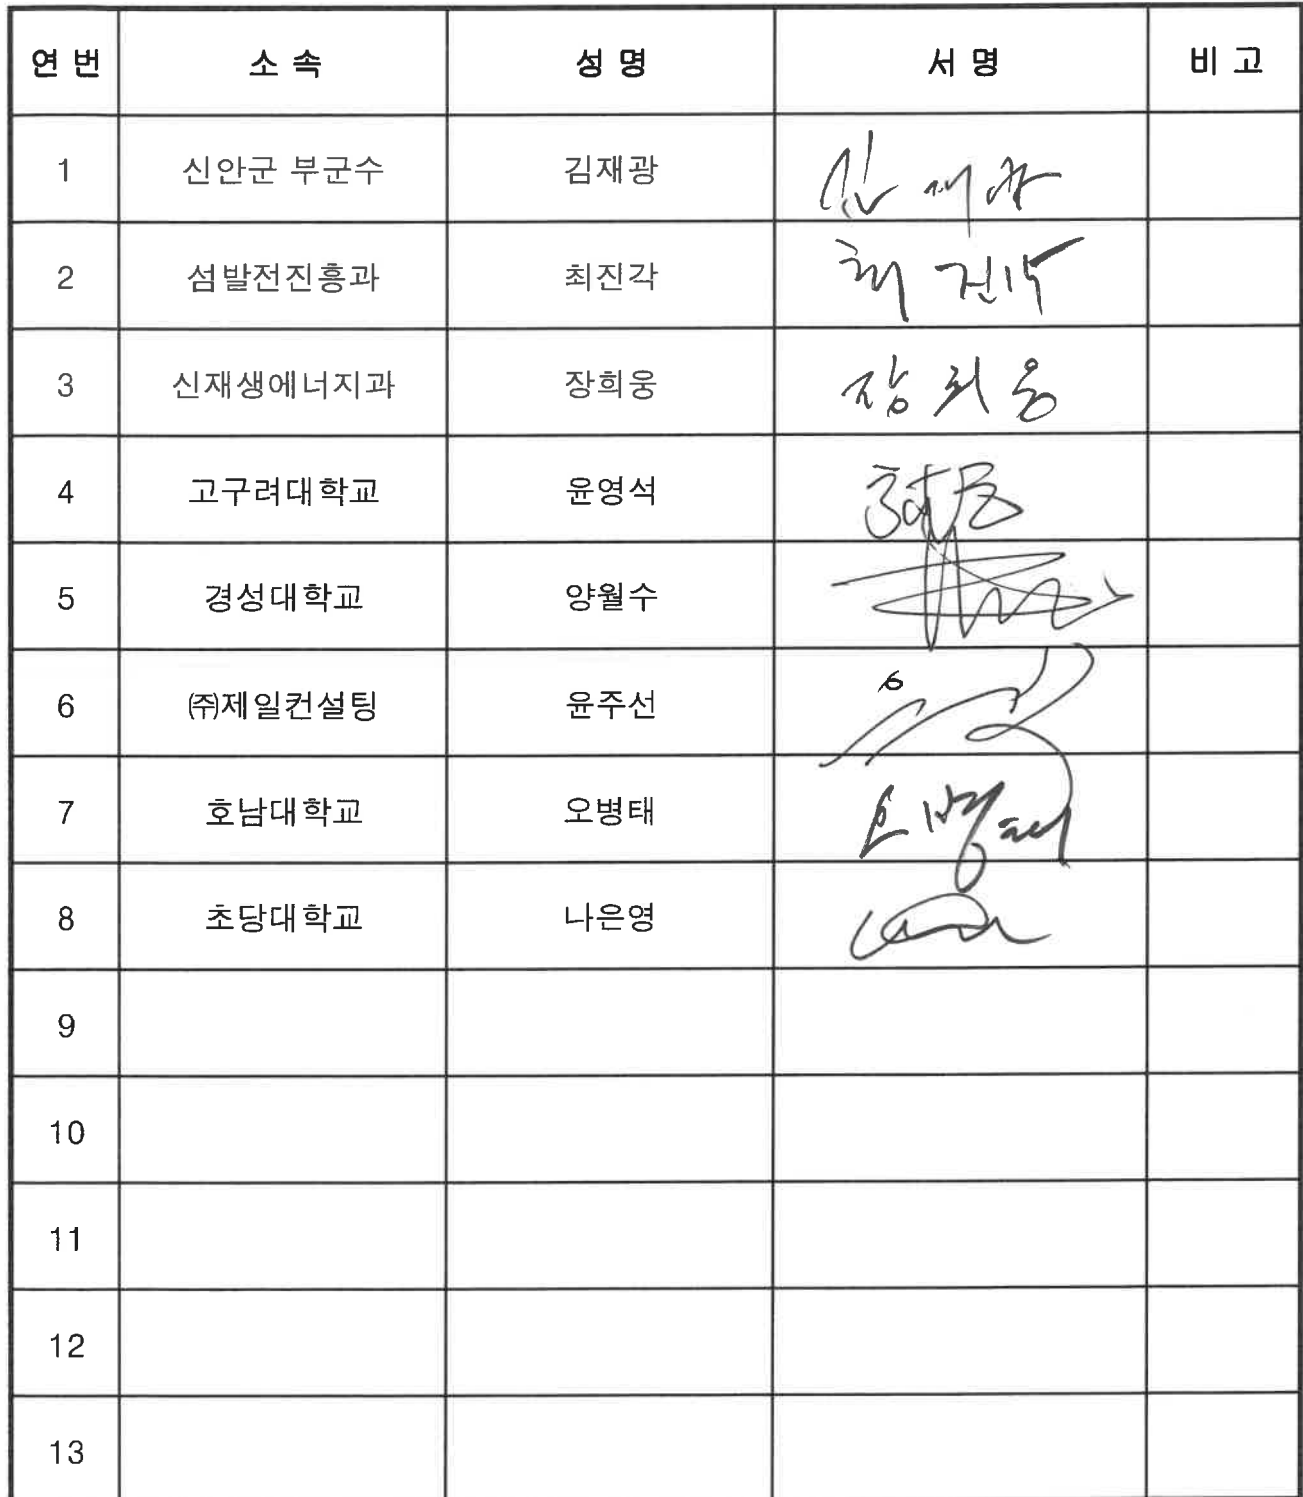 연번 소속 성명 서명 비고
1 신안군 부군수 김재광
2 섬발전진흥과 최진각 최진각
3 신재생에너지과 장희웅 장희웅
4 고구려대학교 윤영석
5 경성대학교 양월수
6 ㈜제일컨설팅 윤주선
7 호남대학교 오병태 오병태
8 초당대학교 나은영
9
10
11
12
13